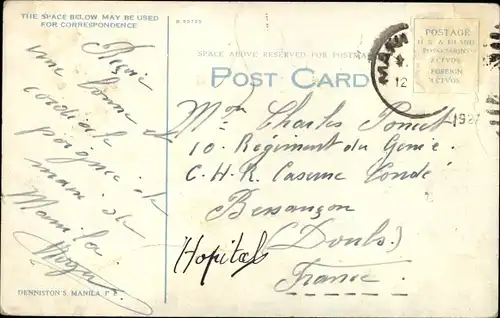 THE SPACE BELOW MAY BE USED
FOR CORRESPONDENCE
une bonne et
cordiale
poignée de
main de
Manila.
DENNISTON'S MANILA, P. I.
SPACE ABOVE RESERVED FOR POSTMARK
POST CARD
POSTAGE
U.S. & ISLAND
POSSESSIONS
2 CTVOS
FOREIGN
4 CTVOS.
MANILA
12
1927
Mr Charles Poncet
10. Régiment du Génie.
C.H.R. Caserne Condé
Besançon
(Doubs.)
Hopital
France.